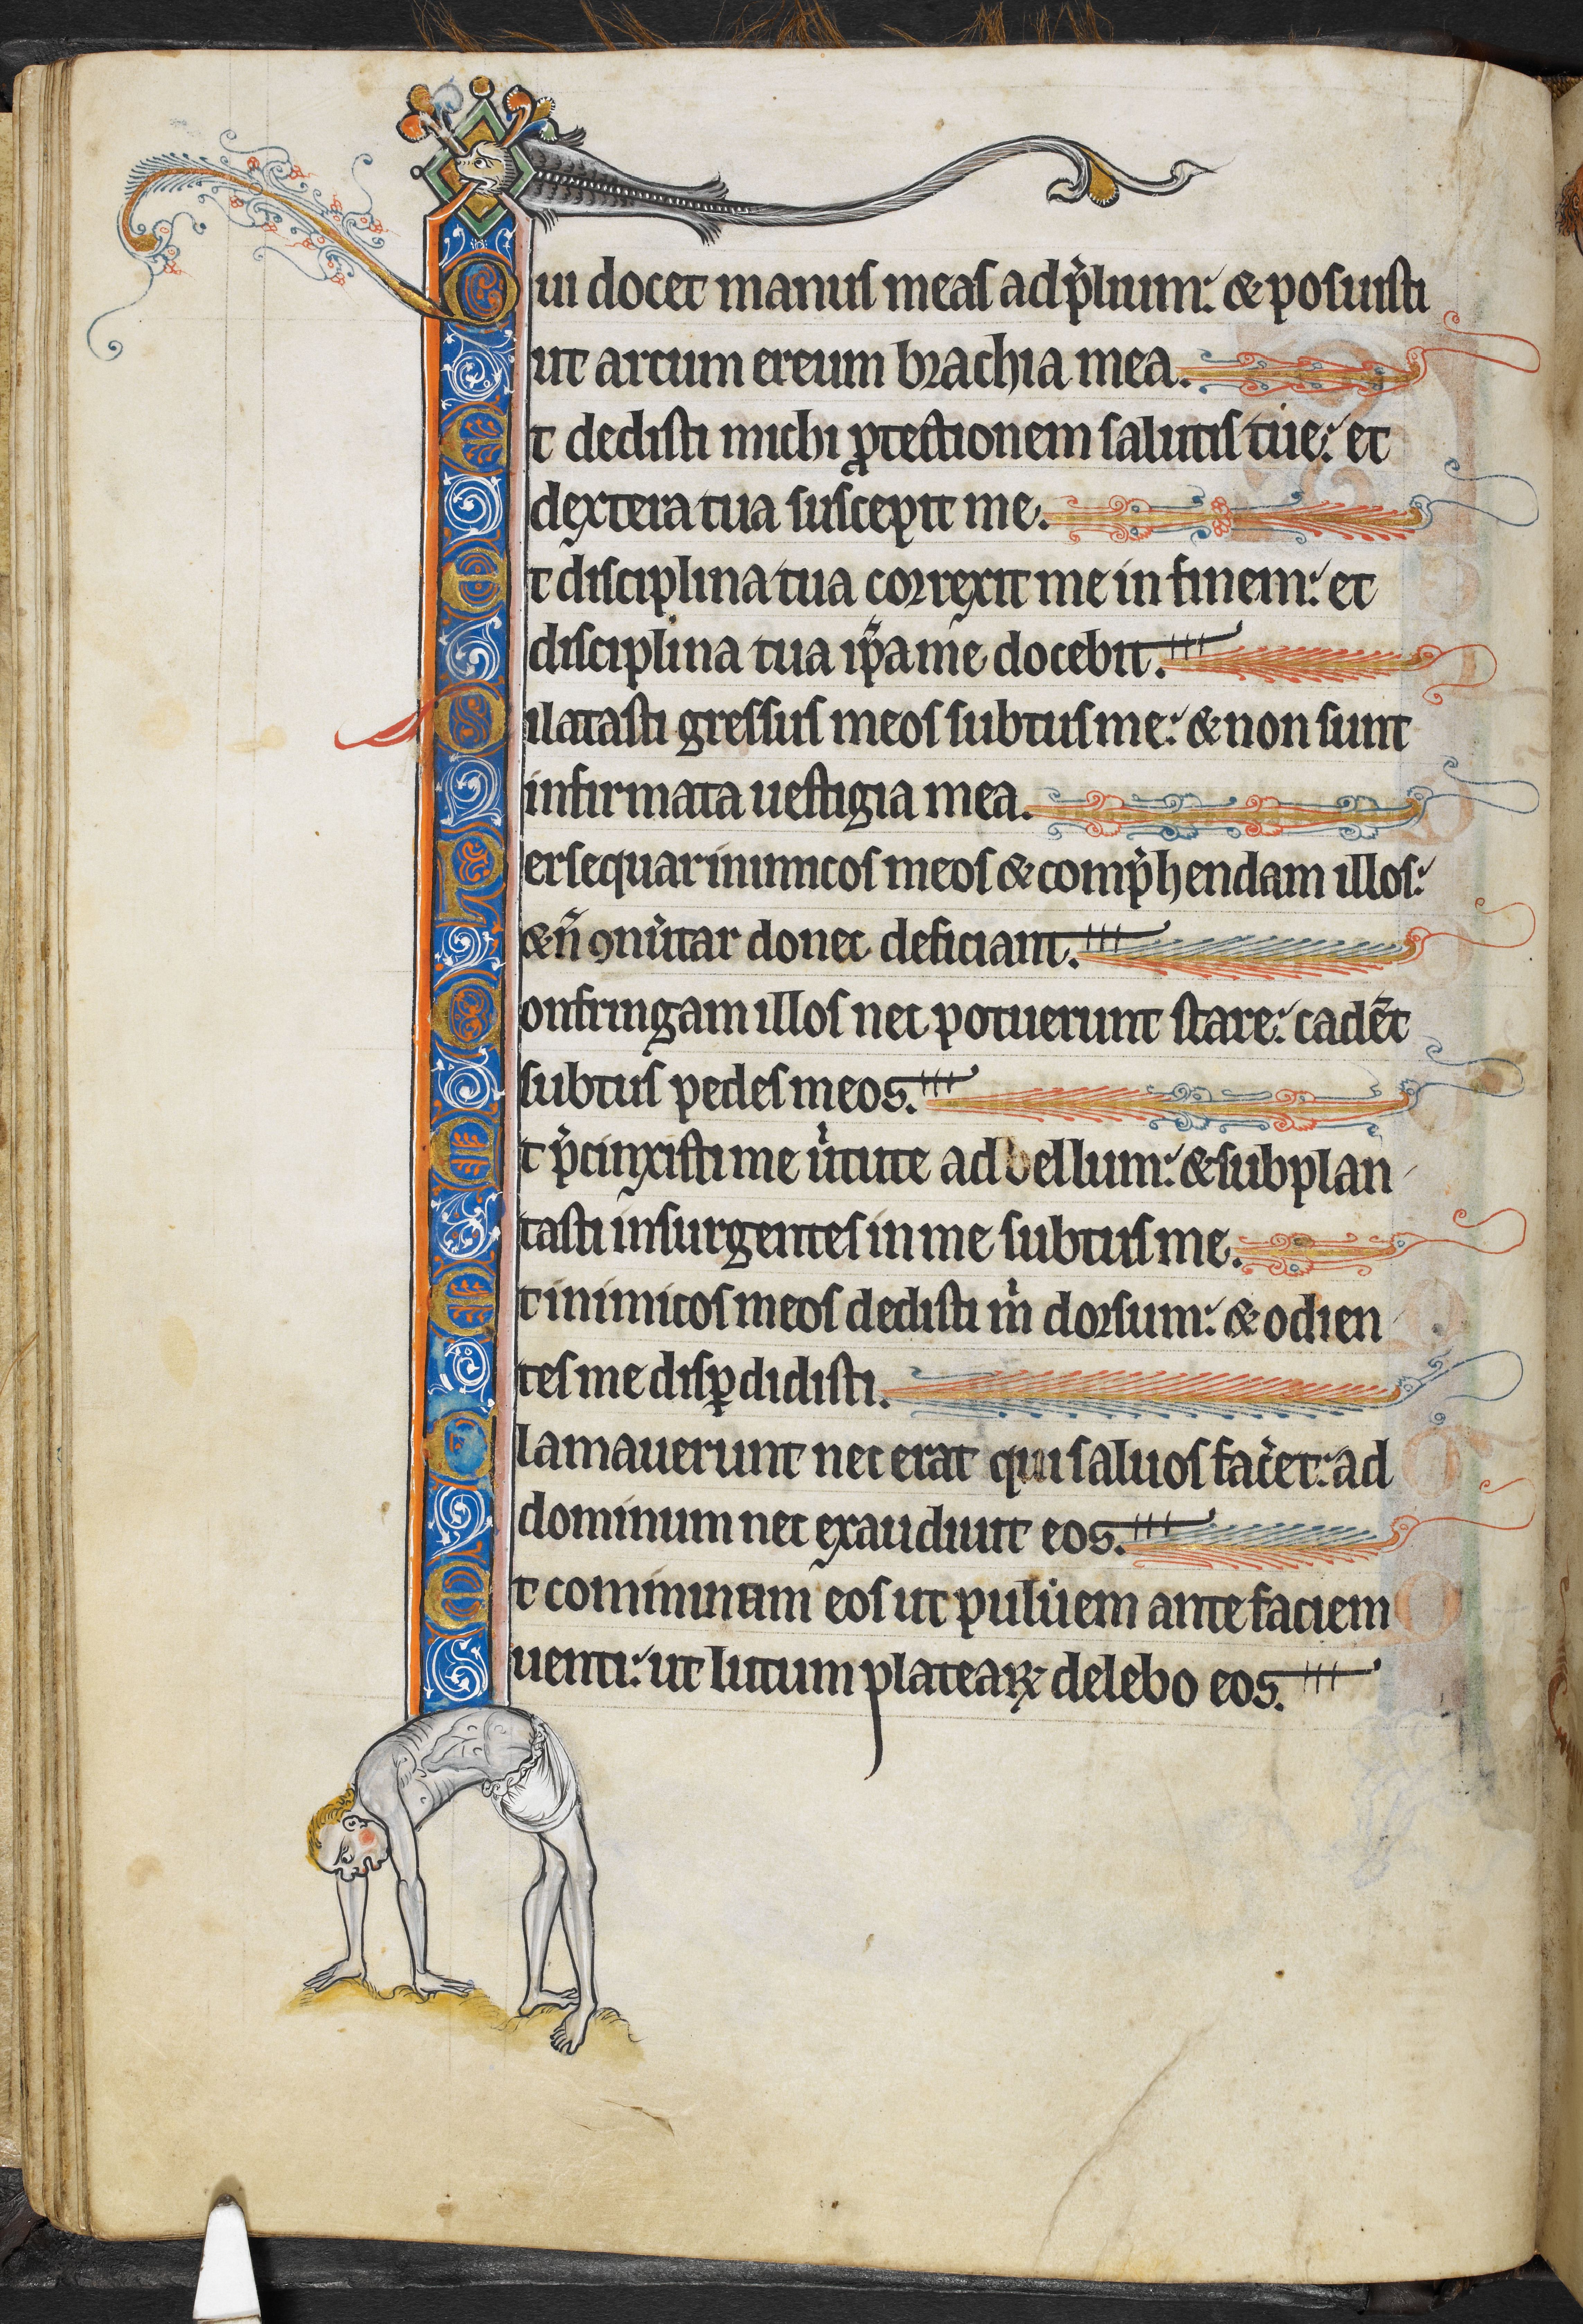 Qui docet manus meas ad p̄lium: & posuisti
ut arcum ereum brachia mea.
Et dedisti michi ꝓtectionem salutis tue: et
dextera tua suscepit me.
Et disciplina tua correxit me in finem: et
disciplina tua ip̄a me docebit.
Dilatasti gressus meos subtus me: & non sunt
infirmata uestigia mea.
Persequar inimicos meos & comp̄hendam illos:
& n̄ ꝯuͥtar donec deficiant.
Confringam illos nec potuerunt stare: cadēt
subtus pedes meos.
Et p̄cinxisti me uͥtute ad bellum: & subplan
tasti insurgentes in me subtus me.
Et inimicos meos dedisti mͥ dorsum: & odien
tes me disꝑdidisti.
Clamauerunt nec erat qui saluos fac̄et: ad
dominum nec exaudiuit eos.
Et comminuam eos ut puluͥem ante faciem
uenti: ut lutum plateaꝝ delebo eos.